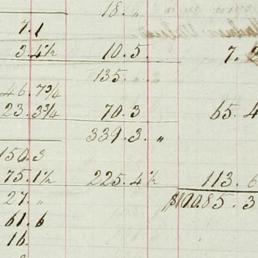 18. "
7.1
3.4½ 10.5. 7.
135. "
46.7¾
23.3¾ 70.3 65.4
339.3. "
150.3
75.1½ 225.4½ 113.6
27. " $10085.3
61.6
16.